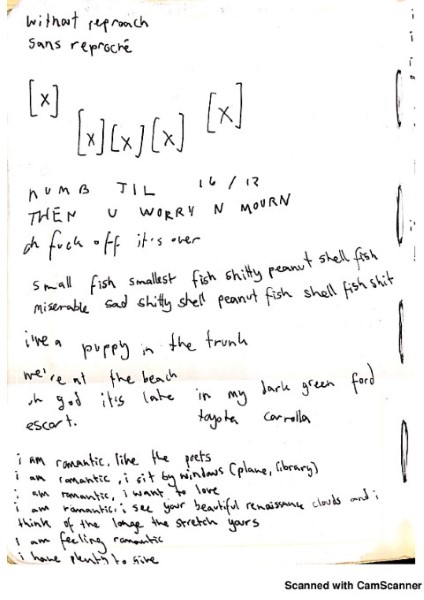 without reproach
sans reproché
[x] [x][x][x] [x]
NUMB TIL 16/12
THEN U WORRY N MOURN
oh fuck off it's over
small fish smallest fish shitty peanut shell fish
miserable sad shitty shell peanut fish shell fish shit
i've a puppy in the trunk
we're at the beach
oh god it's late in my dark green ford
escort. toyota corrolla
i am romantic, like the poets
i am romantic, i sit by windows (plane, library)
i am romantic, i want to love
i am romantic, i see your beautiful renaissance clouds and i
think of the the stretch yours
i am feeling romantic
i have plenty to give
Scanned with CamScanner